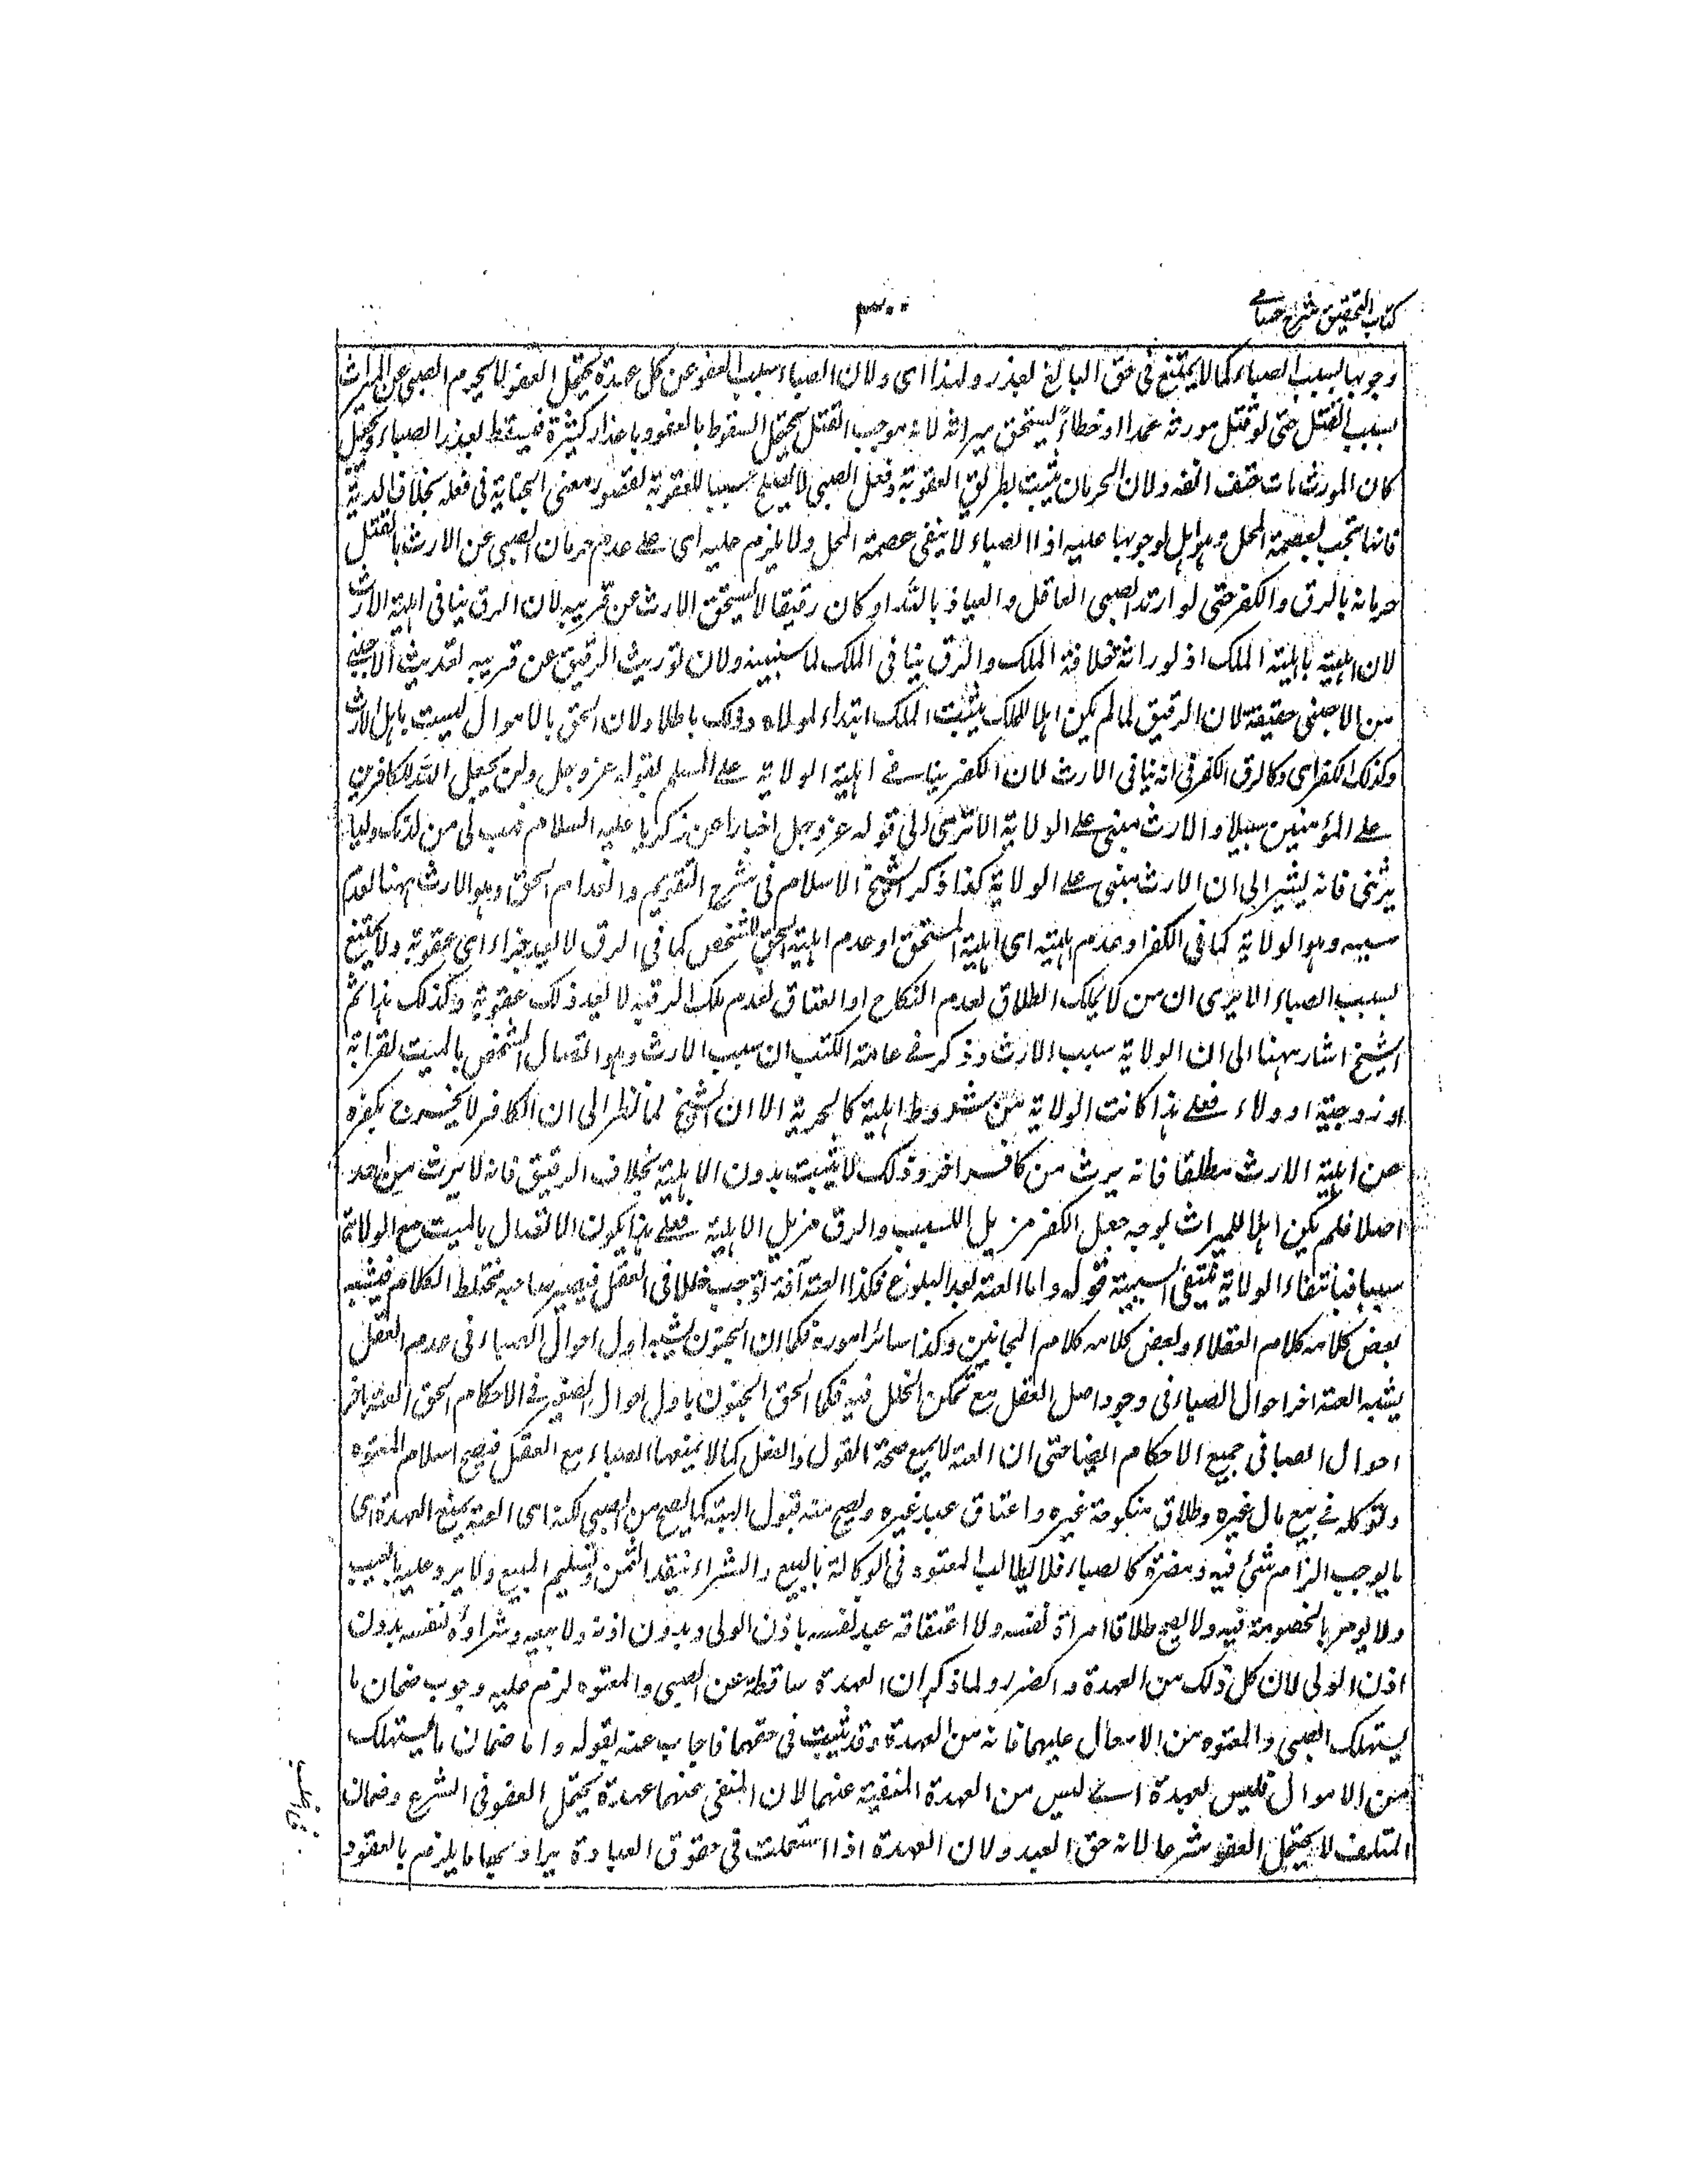 كتاب التحقيق شرح حسامي
٣٠٠
وجوبها بسبب الصباء كما لا يمتنع في حق البالغ بعذر ولهذا اى ولان الصباء سبب العفو عن كل عهدة يحتمل العفو لا يحرم الصبي عن الميراث
بسبب القتل حتى لو قتل مورثه عمدا او خطاءً يستحق ميراثه لانه موجب القتل يحتمل السقوط بالعفو وباعذار كثيرة فيسقط بعذر الصباء ويجعل
كان المورث مات حتف انفه ولان الحرمان يثبت بطريق العقوبة وفعل الصبي لا يصلح سببا للعقوبة لقصور معنى الجناية في فعله بخلاف الدية
فانها تجب لعصمة المحل وهو اهل لوجوبها عليه اذ الصباء لا ينفى عصمة المحل ولا يلزم عليه اى على عدم حرمان الصبي عن الارث بالقتل
حرمانه بالرق والكفر حتى لو ارتد الصبي العاقل والعياذ بالله او كان رقيقا لا يستحق الارث عن قريبه لان الرق ينافى اهلية الارث
لان اهليته باهلية الملك اذ لوراثة خلافة الملك والرق ينافى الملك لما سنبينه ولان توريث الرقيق عن قريبه توريث الاجنبي
من الاجنبى حقيقة لان الرقيق لما لم يكن اهلا للملك يثبت الملك ابتداء لمولاه وذلك باطل ولان الحق بالاموال ليست باهل للارث
وكذلك الكفر اى وكالرق الكفر في انه ينافى الارث لان الكفر ينافى اهلية الولاية على المسلم لقوله عز وجل ولن يجعل الله للكافرين
على المؤمنين سبيلا والارث مبنى على الولاية الا ترى الى قوله عز وجل اخبارا عن زكريا عليه السلام فهب لى من لدنك وليا
يرثنى فانه يشير الى ان الارث مبنى على الولاية كذا ذكر شيخ الاسلام فى شرح التقويم وانعدام الحق وهو الارث ههنا لعدم
سببه وهو الولاية كما فى الكفر او عدم اهليته اى اهلية المستحق او عدم اهلية الحق الشخص كما فى الرق لا يعد جزاء اى عقوبة ولا يمتنع
بسبب الصباء الا يرى ان من لا يملك الطلاق لعدم النكاح او العتاق لعدم ملك الرقبة لا يعد ذلك عقوبة وكذلك هذا ثم
الشيخ اشار ههنا الى ان الولاية سبب الارث وذكر فى عامة الكتب ان سبب الارث وهو اتصال الشخص بالميت لقرابة
او زوجية او ولاء فعلى هذا كانت الولاية من شروط اهلية كالحرية الا ان الشيخ لما نظر الى ان الكافر لا يخرج بكفره
عن اهلية الارث مطلقا فانه يرث من كافر اخر وذلك لا يثبت بدون الاهلية بخلاف الرقيق فانه لا يرث من احد
اصلا فلم يكن اهلا للميراث بوجه جعل الكفر مزيل السبب والرق مزيل الاهلية فعلى هذا يكون الاتصال بالميت مع الولاية
سببا فبانتفاء الولاية تنتفى السببية قوله واما العته بعد البلوغ فكذا العته آفة توجب خللا فى العقل فيصير صاحبه مختلط الكلام فيشبه
بعض كلامه كلام العقلاء وبعض كلامه كلام المجانين وكذا سائر اموره فكما ان الجنون يشبه اول احوال الصباء فى عدم العقل
يشبه العته اخر احوال الصباء فى وجود اصل العقل مع تمكن الخلل فيه فكما الحق الجنون باول احوال الصغير فى الاحكام الحق العته باخر
احوال الصبا فى جميع الاحكام ايضا حتى ان العته لا يمنع صحة القول والفعل كما لا يمنعها الصباء مع العقل فيصح اسلام المعتوه
وتوكله فى بيع مال غيره وطلاق منكوحة غيره واعتاق عبد غيره ويصح منه قبول الهبة كما يصح من الصبي لكنه اى العته يمنع العهدة اى
ما يوجب الزام شئ فيه ومضرة كالصباء فلا يطالب المعتوه فى الوكالة بالبيع والشراء بنقد الثمن وتسليم المبيع ولا يرد عليه بالعيب
ولا يومر بالخصومة فيه ولا يصح طلاقه امراة نفسه ولا اعتاقه عبد نفسه باذن الولى وبدون اذنه ولا بيعه وشراؤه لنفسه بدون
اذن الولى لان كل ذلك من العهدة والضرر ولما ذكر ان العهدة ساقطة عن الصبي والمعتوه لزم عليه وجوب ضمان ما
يستهلك الصبي والمعتوه من الاموال عليهما فانه من العهدة وقد ثبت فى حقهما فاجاب عنه بقوله واما ضمان ما يستهلك
من الاموال فليس بعهدة اى ليس من العهدة المنفية عنهما لان المنفى عنهما عهدة يحتمل العفو فى الشرع وضمان
المتلف لا يحتمل العفو شرعا لانه حق العبد ولان العهدة اذا استعملت فى حقوق العباد ة يراد بها ما يلزم بالعقود